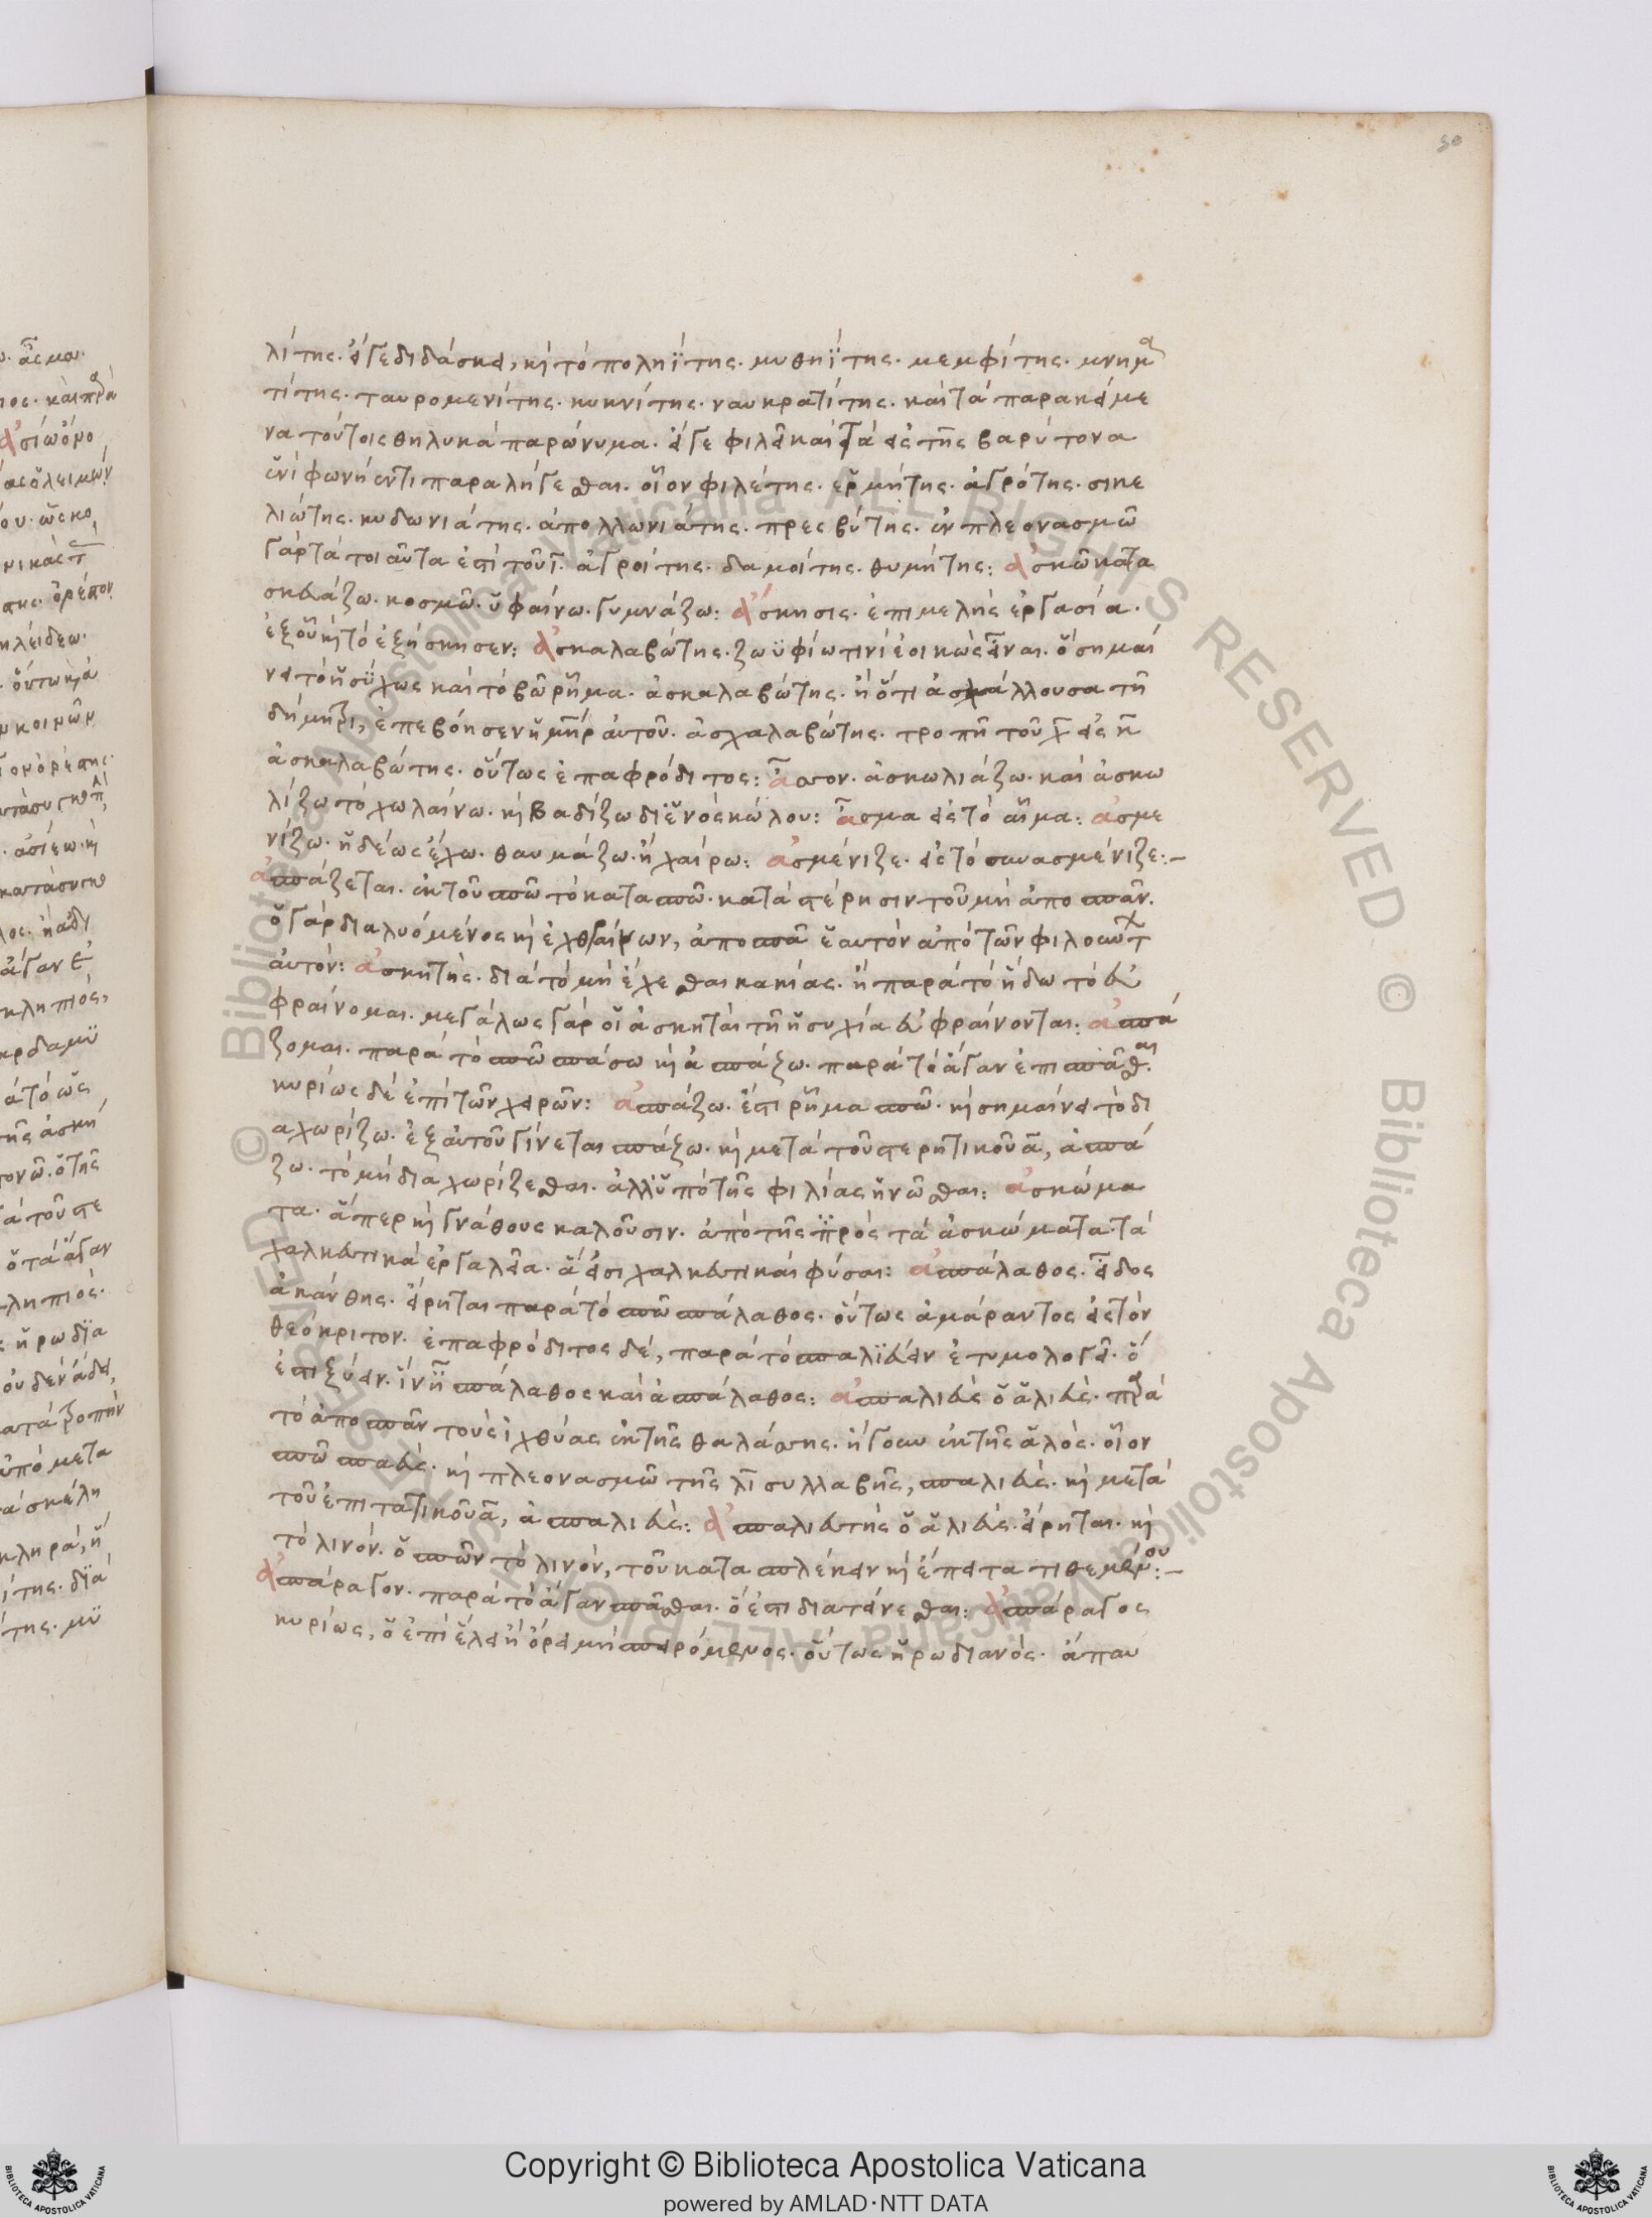 30
λίτης· εἴγε διδάσκει, καὶ τὸ πολιΐτης· μυθιΐτης· μεμφίτης· μνημα
τίτης· ταυρομενίτης· κυκνίτης· ναυκρατίτης· καὶ τὰ παρακείμε
να τούτοις θηλυκὰ παρώνυμα· εἴγε φιλεῖ καὶ τὰ εἰς της βαρύτονα
ἑνὶ φωνήεντι παραλήγεσθαι· οἷον φιλέτης· ἑρμήτης· ἀγρότης· σικε
λιώτης· κυδωνιάτης· ἀπολλωνιάτης· πρεσβύτης· ἐν πλεονασμῶ
γὰρ τὰ τοιαῦτα ἐστὶ τοῦ ϊ· ἀγροίτης· δαμοίτης· θυμήτης: ἀσκῶ κατα
σκευάζω· κοσμῶ· ὑφαίνω· γυμνάζω: ἄσκησις· ἐπιμελὴς ἐργασία·
ἐξ οὗ καὶ τὸ ἐξήσκησεν: ἀσκαλαβώτης· ζωϋφίω τινὶ ἐοικὼς εἶναι· ὃ σημαί
νει τὸ ἡσύχως καὶ τὸ βῶ ῥῆμα· ἀσκαλαβώτης· ἢ ὅτι ἀσχάλλουσα τῆ
δήμητρι, ἐπεβόησεν ἡ μήτηρ αὐτοῦ· ἀσχαλαβώτης· τροπῆ τοῦ χ εἰς κ
ἀσκαλαβώτης· οὕτως ἐπαφρόδιτος: ἆσσον· ἀσκωλιάζω· καὶ ἀσκω
λίζω τὸ χωλαίνω· καὶ βαδίζω δι' ἑνὸς κώλου: ἆσμα εἰς τὸ αἷμα: ἀσμε
νίζω· ἡδέως ἔχω· θαυμάζω· ἢ χαίρω: ἀσμένιζε· εἰς τὸ συνασμένιζε:–
ἀσπάζεται· ἐκ τοῦ σπῶ τὸ κατασπῶ· κατὰ στέρησιν τοῦ μὴ ἀποσπᾶν·
ὁ γὰρ διαλυόμενος καὶ ἐχθραίνων, ἀποσπᾶ ἑαυτὸν ἀπὸ τῶν φιλούντων
αὐτόν: ἀσκητής· διὰ τὸ μὴ ἔχεσθαι κακίας· ἢ παρὰ τὸ ἥδω τὸ εὐ
φραίνομαι· μεγάλως γὰρ οἱ ἀσκηταὶ τῆ ἡσυχία εὐφραίνονται: ἀσπά
ζομαι· παρὰ τὸ σπῶ σπάσω καὶ ἀσπάζω· παρὰ τὸ ἄγαν ἐπισπᾶσθαι
κυρίως δὲ ἐπὶ τῶν χειρῶν: ἀσπάζω· ἔστι ῥῆμα σπῶ· καὶ σημαίνει τὸ δι
αχωρίζω· ἐξ αὐτοῦ γίνεται σπάζω· καὶ μετὰ τοῦ στερητικοῦ α, ἀσπά
ζω· τὸ μὴ διαχωρίζεσθαι· ἀλλ' ὑπὸ τῆς φιλίας ἡνῶσθαι: ἀσκώμα
τα· ἅπερ καὶ γνάθους καλοῦσιν· ἀπὸ τῆς πρὸς τὰ ἀσκώματα· τὰ
χαλκευτικὰ ἐργαλεῖα· ἅ εἰσι χαλκευτικαὶ φύσαι: ἀσπάλαθος· εἶδος
ἀκάνθης· εἴρηται παρὰ τὸ σπῶ σπάλαθος· οὕτως ἀμάραντος εἰς τὸν
θεόκριτον· ἐπαφρόδιτος δὲ, παρὰ τὸ σπαλϊεύειν ἐτυμολογεῖ· ὅ
ἐστι ξύειν· ἵν' ἦ σπάλαθος καὶ ἀσπάλαθος: ἀσπαλιεὺς ὁ ἁλιεὺς· παρὰ
τὸ ἀποσπᾶν τοὺς ἰχθύας ἐκ τῆς θαλάσσης· ἤγουν ἐκ τῆς ἁλός· οἷον
σπῶ σπαεύς· καὶ πλεονασμῶ τῆς λι συλλαβῆς, σπαλιεύς· καὶ μετὰ
τοῦ ἐπιτατικοῦ α, ἀσπαλιεύς: ἀσπαλιευτὴς ὁ ἁλιεύς· εἴρηται· καὶ
τὸ λινόν· ὁ σπῶν τὸ λινὸν, τοῦ κατασπλέκειν καὶ ἔπειτα τιθεμένου:–
ἀσπάραγον· παρὰ τὸ ἄγαν σπᾶσθαι· ὅ ἐστι διατείνεσθαι: ἀσπάραγος
κυρίως, ὁ ἐπὶ ἕλει ἢ ὄρει μὴ σπειρόμενος· οὕτως ἡρωδιανός· ἅπαν
Copyright © Biblioteca Apostolica Vaticana
powered by AMLAD·NTT DATA